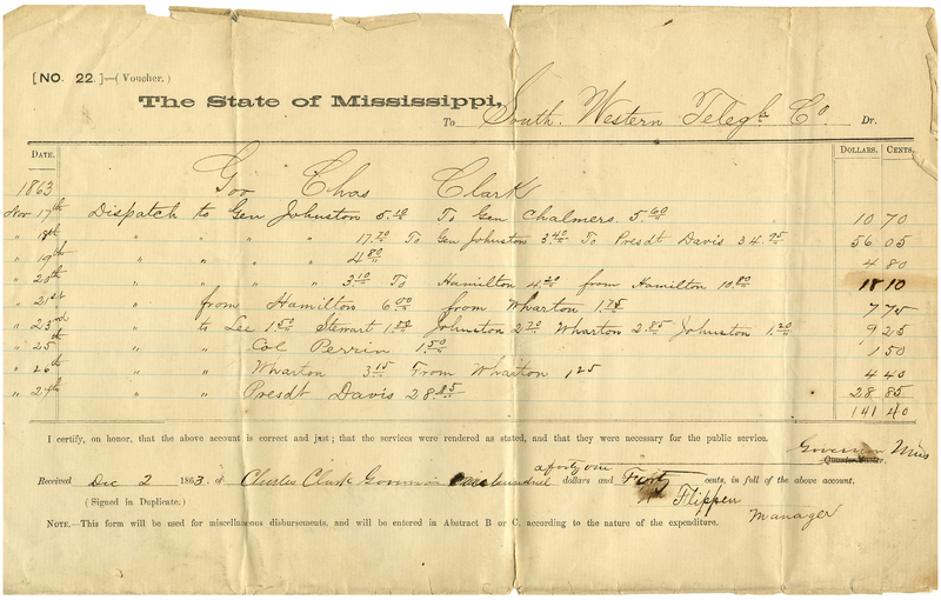 [NO. 22.]—(Voucher.)
The State of Mississippi,
To South. Western Telegh Co. Dr.
DATE. DOLLARS. CENTS.
1863 Gov Chas Clark
Nov 17th Dispatch to Gen Johnston 5.10 To Gen Chalmers. 5 60 10 70
" 18th " " " " 17.70 To Gen Johnston 3 40 To Presdt Davis 34.95 56 05
" 19th " " " " 4 80 4 80
" 20th " " " " 3.10 To Hamilton 4.20 from Hamilton 10.80 18 10
" 21st from Hamilton 6 00 from Wharton 1.75 7 75
" 23rd " to Lee 1.50 Stewart Johnston 2 70 Wharton 2.85 Johnston 1.20 9 25
" 25th " " Col Perrin 1.50 1 50
" 26th " " Wharton 3 15 From Wharton 1 25 4 40
" " " Presdt Davis 28 85 28 85
141 40
I certify, on honor, that the above account is correct and just; that the services were rendered as stated, and that they were necessary for the public service.
Governor Miss
Quartermaster.
Received Dec 2 1863, of Charles Clark Governor one hundred & forty one dollars and Forty cents, in full of the above account.
(Signed in Duplicate.) Flippen
Manager
NOTE.—This form will be used for miscellaneous disbursements, and will be entered in Abstract B or C, according to the nature of the expenditure.